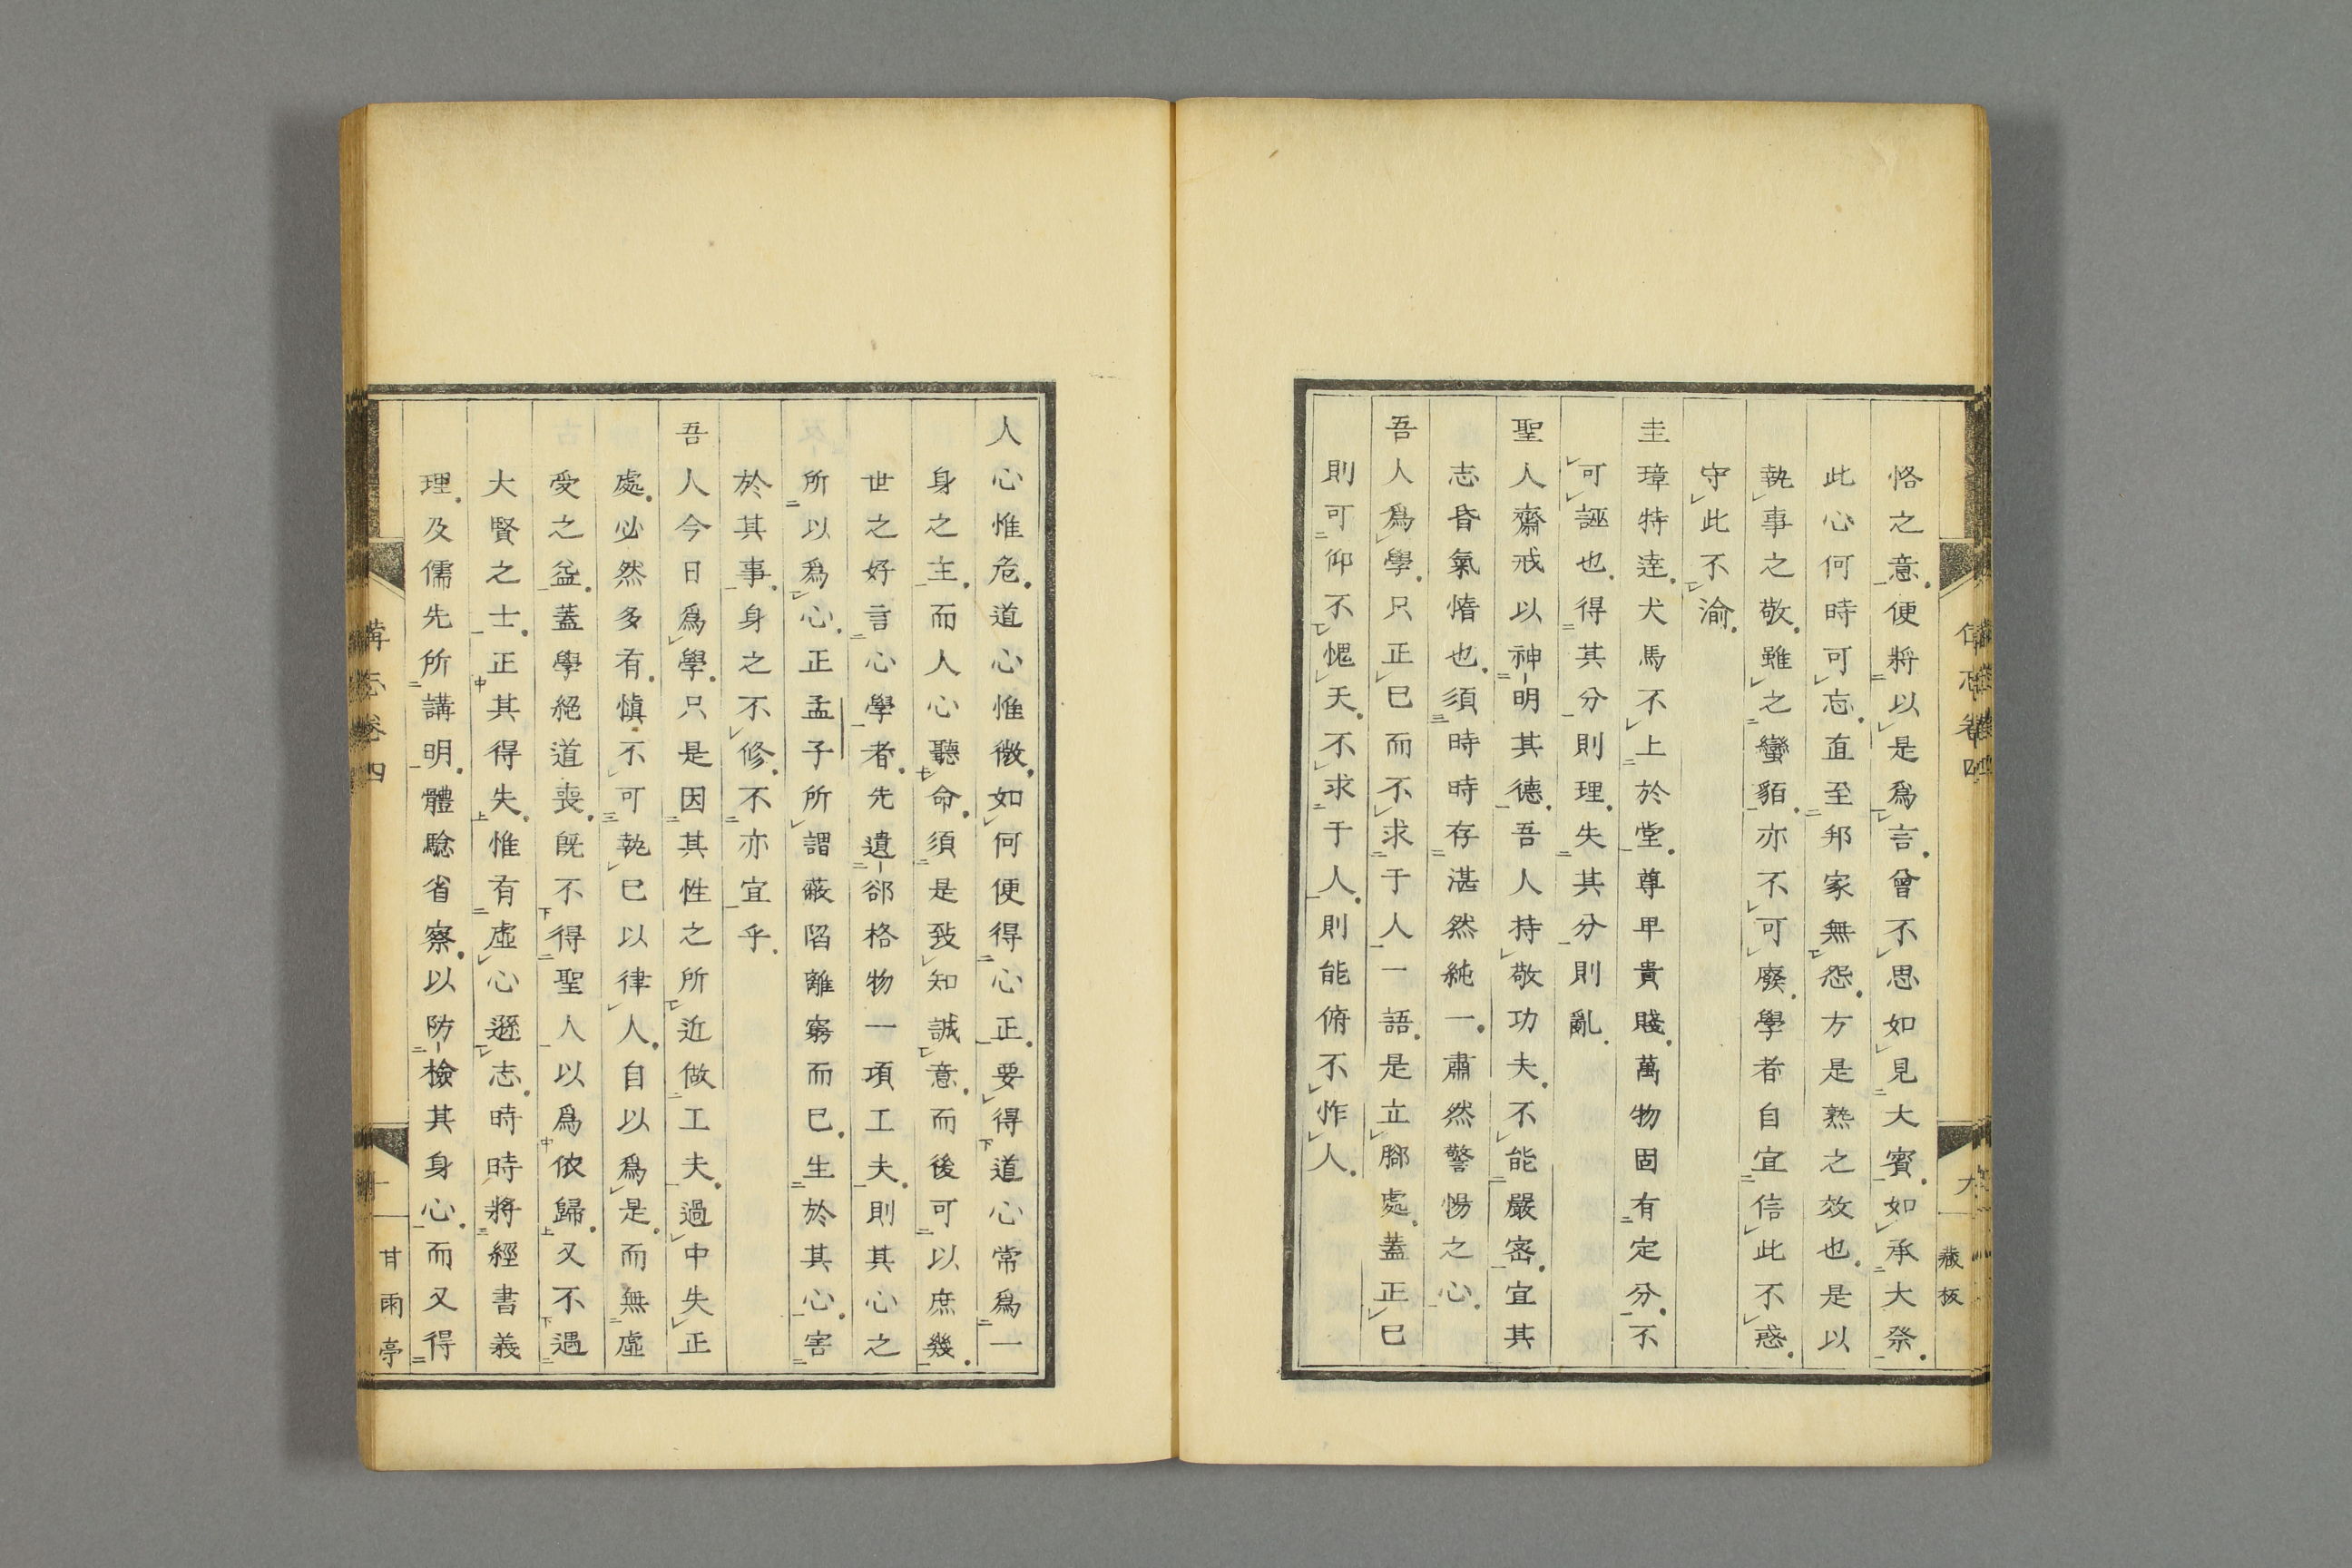 恪之意便將以是爲言曾不思如見大賓如承大祭
此心何時可忘直至邦家無怨方是熟之效也是以
執事之敬雖之蠻貊亦不可廢學者自宜信此不惑
守此不渝
圭璋特達犬馬不上於堂尊卑貴賤萬物固有定分不
可誣也得其分則理失其分則亂
聖人齋戒以神明其德吾人持敬功夫不能嚴密宜其
志昏氣惰也須時時存湛然純一肅然警惕之心
吾人爲學只正己而不求于人一語是立腳處蓋正己
則可仰不愧天不求于人則能俯不怍人
藏板
人心惟危道心惟微如何便得心正要得道心常爲一
身之主而人心聽命須是致知誠意而後可以庶幾
世之好言心學者先遺郤格物一項工夫則其心之
所以爲心正孟子所謂蔽陷離窮而已生於其心害
於其事身之不修不亦宜乎
吾人今日爲學只是因其性之所近做工夫過中失正
處必然多有愼不可執己以律人自以爲是而無虛
受之益蓋學絕道喪既不得聖人以爲依歸又不遇
大賢之士正其得失惟有虛心遜志時時將經書義
理及儒先所講明體驗省察以防檢其身心而又得
卷四
甘雨亭